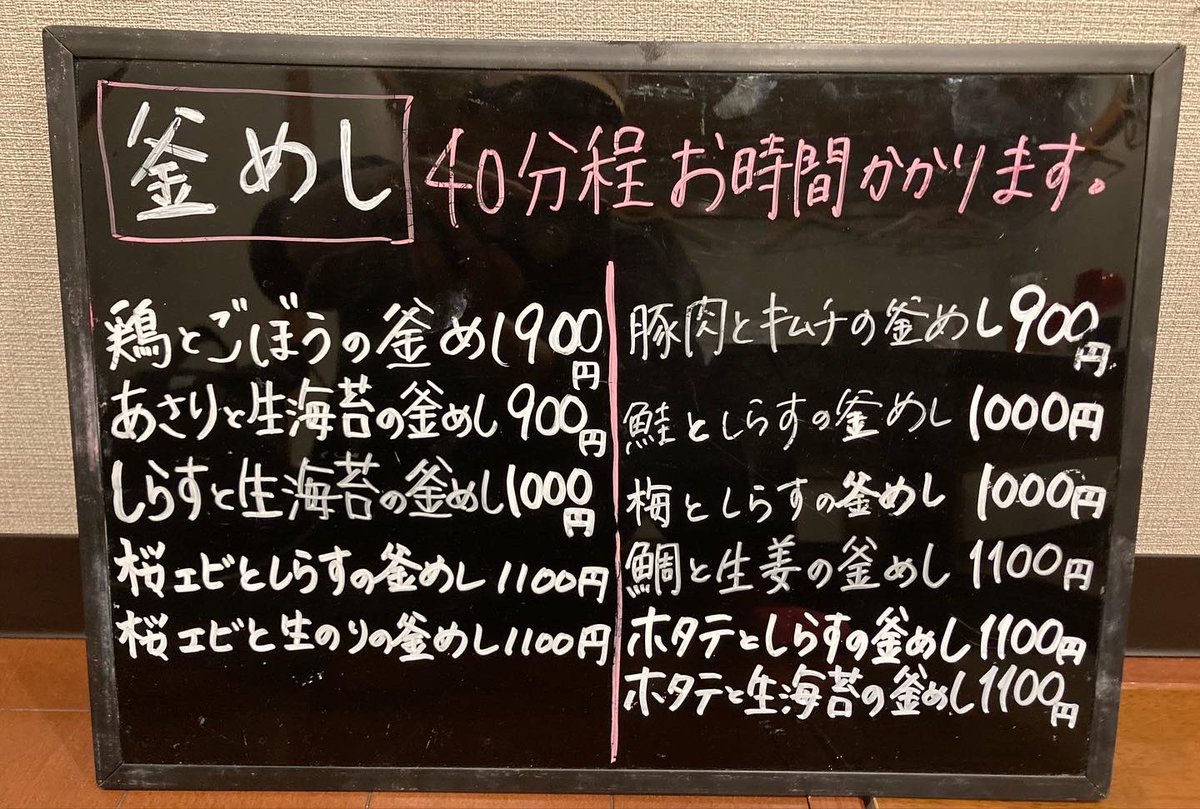 釜めし 40分程お時間かかります。
鶏とごぼうの釜めし900円
あさりと生海苔の釜めし900円
しらすと生海苔の釜めし1000円
桜エビとしらすの釜めし1100円
桜エビと生のりの釜めし1100円
豚肉とキムチの釜めし900円
鮭としらすの釜めし1000円
梅としらすの釜めし1000円
鯛と生姜の釜めし1100円
ホタテとしらすの釜めし1100円
ホタテと生海苔の釜めし1100円